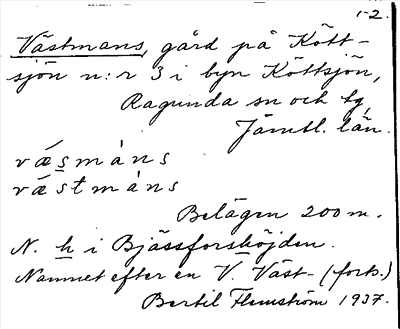 1-2.
Västmans, gård på Kött-
sjön n:r 3 i byn Köttsjön,
Ragunda sn och tg,
Jämtl. län.
væ̀smàns
væ̀stmàns
Belägen 200 m.
N. h i Bjässforshöjden.
Namnet efter en V. Väst- (forts.)
Bertil Flemström 1937.